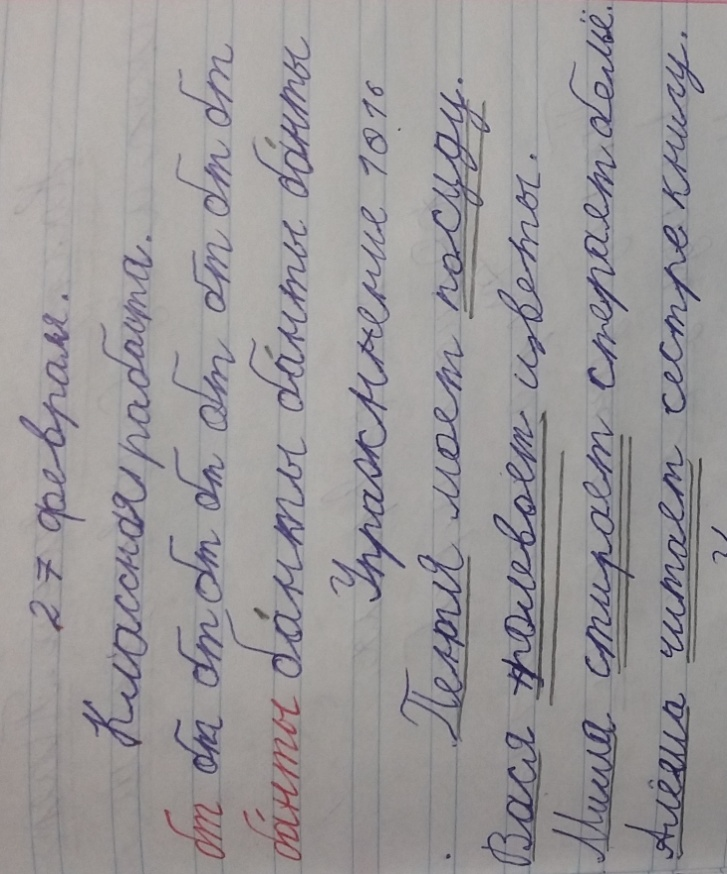 27 февраля.
Классная работа.
бт бт бт бт бт бт бт бт бт
ба́нты ба́нты ба́нты ба́нты ба́нты
Упражнение 101б
Петя моет посуду.
Вася полевоет цветы.
Миша стирает стерает бельё.
Алёша читает сестре книгу.